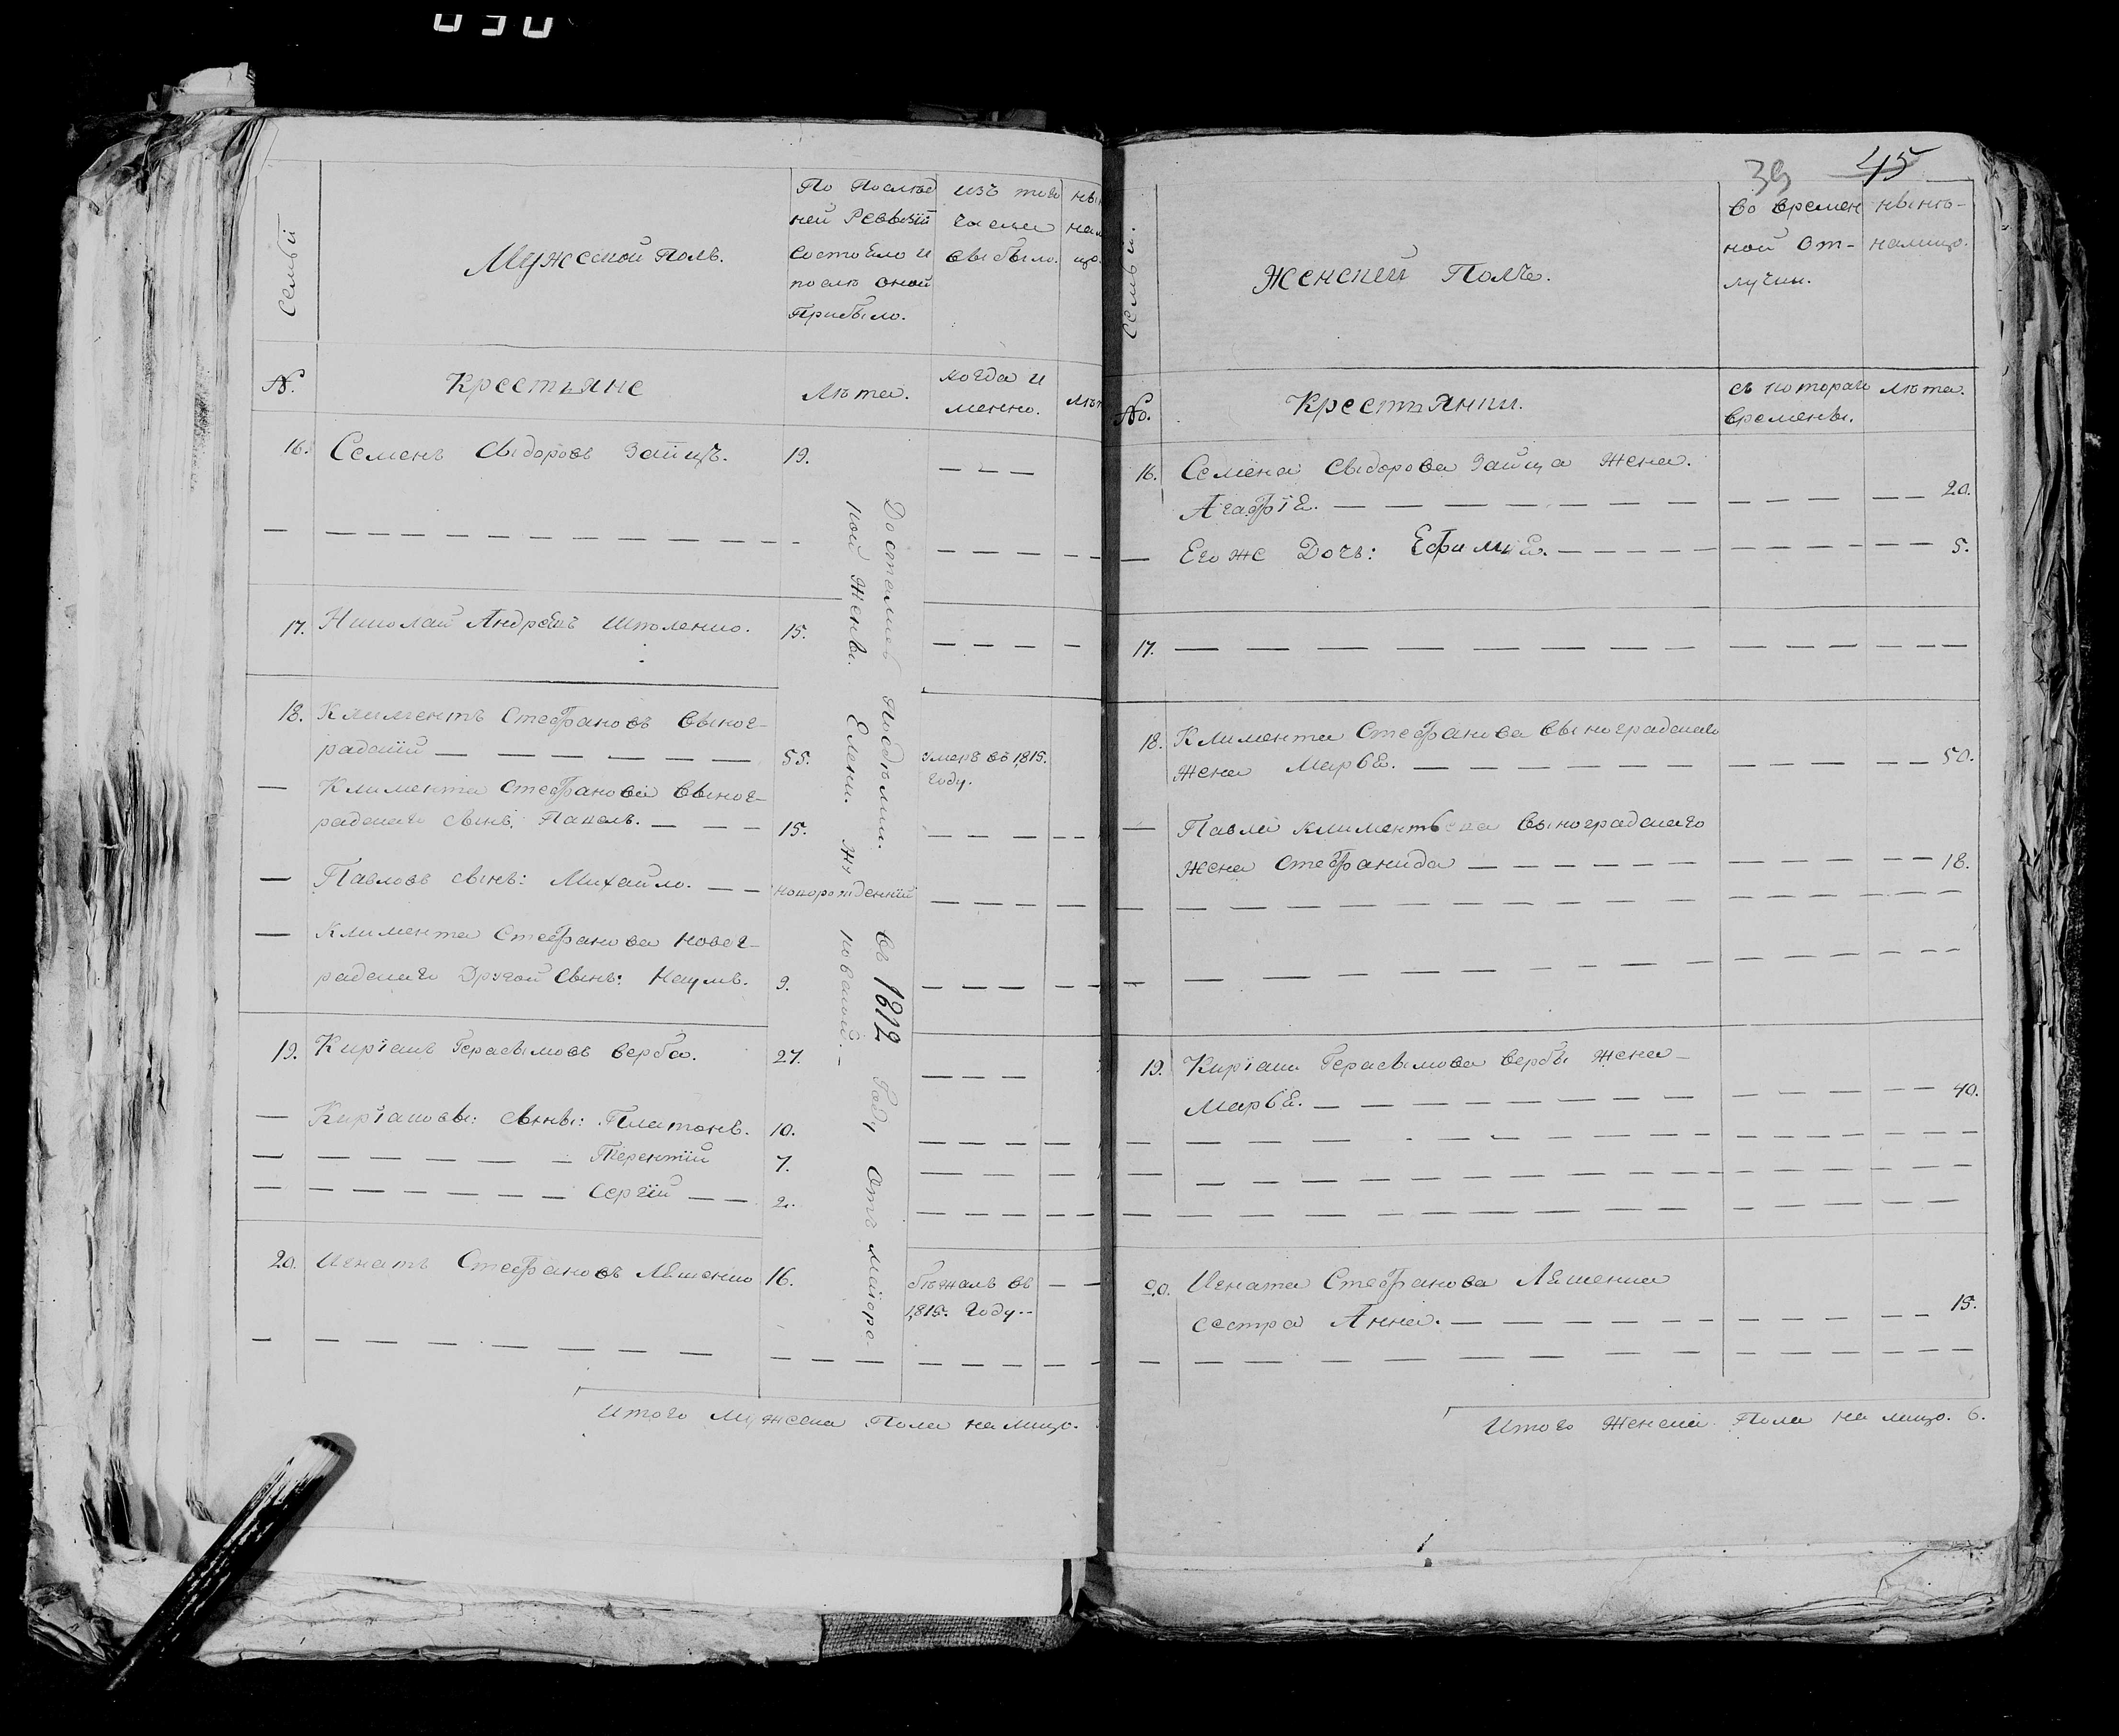 030
Семьй
Мужеской Полъ.
По Послѣд
ней Ревызiй
Состояло и
послѣ оной
Прибыло.
изъ того
числа
выбыло.
№.
Крестьяне
Лѣта.
когда и
менно.
16. Семенъ Сыдоровъ Заицъ. 19.
17. Николай Андрѣевъ Штоленко. 15.
18. Климентъ Стефановъ Выног-
радскiй 55. умеръ въ 1815.
году.
Климента Стефанова Выног-
радскаго сынъ, Павелъ. 15.
Павловъ сынъ: Михайло. новорожденнiй
Климента Стефанова Новог-
радскаго Другой Сынъ: Наумъ. 9.
19. Кирiакъ Герасымовъ Верба. 27.
Кирiаковы: сыны: Платонъ. 10.
Терентiй 7.
Сергiй 2.
20. Игнатъ Стефановъ Ляшенко 16. бѣжалъ въ
1815. Году
Досталис Подѣлки. въ 1812 Году Отъ маiора
кой Жены. Елены.
Итого Мужеска Пола на лицо.
39 45
Семьи.
Женскiй Полъ.
Во времен
ной От-
лучки.
нынѣ-
налицо.
№.
Крестьянки.
съ котораго
времены.
лѣта.
16. Семена Сыдорова Зайца Жена.
Агафiя. 20.
Егоже Дочь: Ефимiя. 5.
17.
18. Климента Стефанова Выноградскаго
жена Марья. 50.
Павла Климентьева Выноградскаго
жена Стефанида 18.
19. Кирiака Герасымова Вербы жена
Марья. 40.
20. Игната Стефанова Ляшенка
сестра Анна. 15.
Итого Женска Пола на лицо. 6.